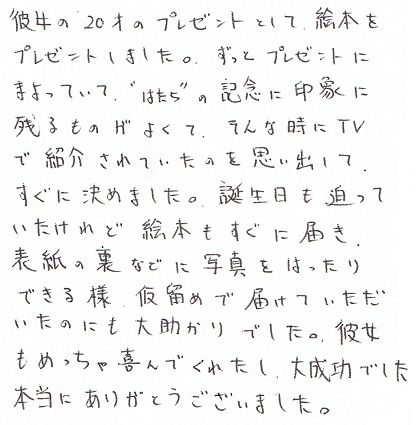 彼女の 20才の プレゼント として、絵本を
プレゼントしました。ずっと プレゼントに
まよっていて、"はたち"の 記念に 印象に
残るものが よくて、そんな時に TV
で 紹介 されていたのを 思い出して、
すぐに 決めました。誕生日も 迫って
いたけれど 絵本も すぐに 届き、
表紙の裏などに 写真を はったり
できる様、仮留めで届けていただ
いたのにも 大助かり でした。彼女
も めっちゃ 喜んでくれたし、大成功でした
本当に ありがとうございました。